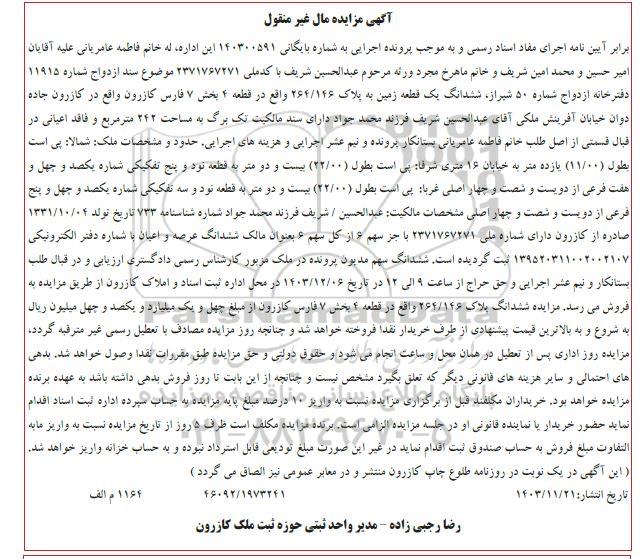 آگهی مزایده مال غیر منقول
برابر آیین نامه اجرای مفاد اسناد رسمی و به موجب پرونده اجرایی به شماره بایگانی ۱۴۰۳۰۰۵۹۱ این اداره، له خانم فاطمه عامریانی علیه آقایان
امیر حسین و محمد امین شریف و خانم ماهرخ مجرد ورثه مرحوم عبدالحسین شریف با کدملی ۲۳۷۱۷۶۷۲۷۱ موضوع سند ازدواج شماره ۱۱۹۱۵
دفترخانه ازدواج شماره ۵۰ شیراز، ششدانگ یک قطعه زمین به پلاک ۲۶۴/۱۴۶ واقع در قطعه ۴ بخش ۷ فارس کازرون واقع در کازرون جاده
دوان خیابان آفرینش ملکی آقای عبدالحسین شریف فرزند محمد جواد دارای سند مالکیت تک برگ به مساحت ۲۴۲ مترمربع و فاقد اعیانی در
قبال قسمتی از اصل طلب خانم فاطمه عامریانی بستانکار پرونده و نیم عشر اجرایی و هزینه های اجرایی. حدود و مشخصات ملک: شمالا: پی است
بطول (۱۱/۰۰) یازده متر به خیابان ۱۶ متری شرقا: پی است بطول (۲۲/۰۰) بیست و دو متر به قطعه نود و پنج تفکیکی شماره یکصد و چهل و
هفت فرعی از دویست و شصت و چهار اصلی غربا: پی است بطول (۲۲/۰۰) بیست و دو متر به قطعه نود و سه تفکیکی شماره یکصد و چهل و پنج
فرعی از دویست و شصت و چهار اصلی مشخصات مالکیت: عبدالحسین / شریف فرزند محمد جواد شماره شناسنامه ۷۳۳ تاریخ تولد ۱۳۳۱/۱۰/۰۴
صادره از کازرون دارای شماره ملی ۲۳۷۱۷۶۷۲۷۱ با جز سهم ۶ از کل سهم ۶ بعنوان مالک ششدانگ عرصه و اعیان با شماره دفتر الکترونیکی
۱۳۹۵۲۰۳۱۱۰۰۲۰۰۲۱۰۷ ثبت گردیده است. ششدانگ سهم مدیون پرونده در ملک مزبور کارشناس رسمی دادگستری ارزیابی و در قبال طلب
بستانکار و نیم عشر اجرایی و حق حراج از ساعت ۹ الی ۱۲ در تاریخ ۱۴۰۳/۱۲/۰۶ در محل اداره ثبت اسناد و املاک کازرون از طریق مزایده به
فروش می رسد. مزایده ششدانگ پلاک ۲۶۴/۱۴۶ واقع در قطعه ۴ بخش ۷ فارس کازرون از مبلغ چهل و یک میلیارد و یکصد و چهل میلیون ریال
به شروع و به بالاترین قیمت پیشنهادی از طرف خریدار نقدا فروخته خواهد شد و چنانچه روز مزایده مصادف با تعطیل رسمی غیر مترقبه گردد،
مزایده روز اداری پس از تعطیل در همان محل و ساعت انجام می شود و حقوق دولتی و حق مزایده طبق مقررات نقدا وصول خواهد شد. بدهی
های احتمالی و سایر هزینه های قانونی دیگر که تعلق بگیرد مشخص نیست و چنانچه از این بابت تا روز فروش بدهی داشته باشد به عهده برنده
مزایده خواهد بود. خریداران مکلفند قبل از برگزاری مزایده نسبت به واریز ۱۰ درصد مبلغ پایه مزایده به حساب سپرده اداره ثبت اسناد اقدام
نماید حضور خریدار یا نماینده قانونی او در جلسه مزایده الزامی است. برنده مزایده مکلف است ظرف ۵ روز از تاریخ مزایده نسبت به واریز مابه
التفاوت مبلغ فروش به حساب صندوق ثبت اقدام نماید در غیر این صورت مبلغ تودیعی قابل استرداد نبوده و به حساب خزانه واریز خواهد شد.
( این آگهی در یک نوبت در روزنامه طلوع چاپ کازرون منتشر و در معابر عمومی نیز الصاق می گردد )
تاریخ انتشار: ۱۴۰۳/۱۱/۲۱ ۴۶۰۹۲/۱۹۷۳۲۴۱ ۱۱۶۴ م الف
رضا رجبی زاده – مدیر واحد ثبتی حوزه ثبت ملک کازرون
۰۲۱-۸۸۳۴۹۶۷۰-۵